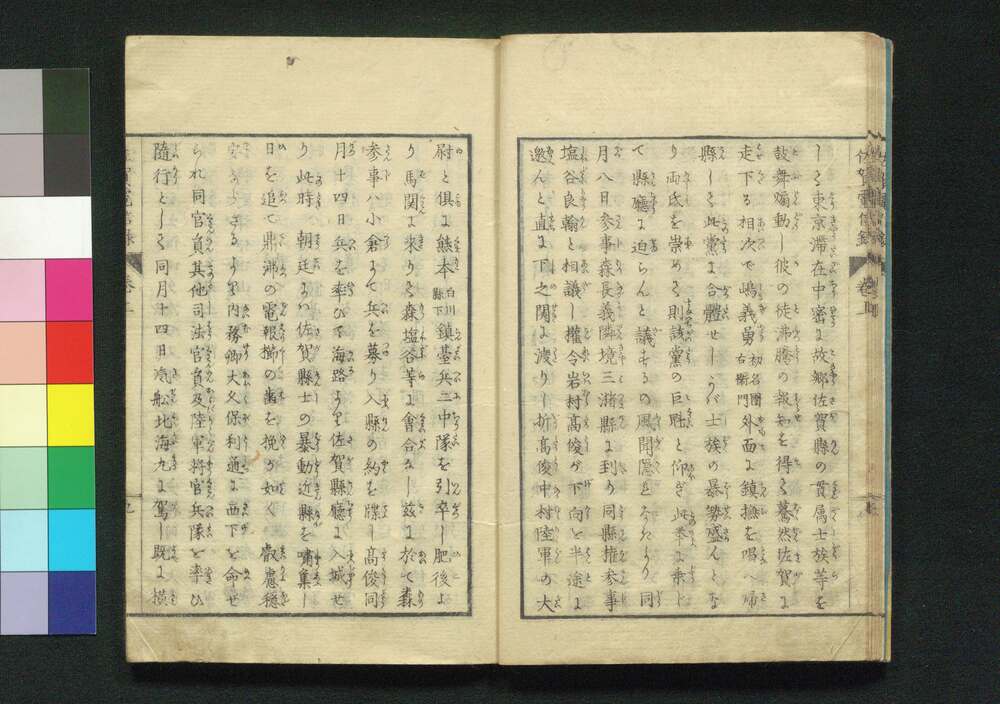 佐賀電信録 巻上
しく東京滞在中密に故郷佐賀縣の貫属士族等を
鼓舞煽動し彼の徒沸騰の報知を得く驀然佐賀に
走下る相次で嶋義勇初名團右衛門外面は鎮撫を唱へ帰
縣しく此黨に合體せしかバ士族の暴勢盛んとな
り両氏を崇めく則該黨の巨魁と仰ぎ此挙に乗じ
て縣廳に迫らんと議するの風聞隠れなきより同
月八日参事森長義隣境三潴縣に到り同縣権参事
塩谷良翰と相議し權令岩村高俊が下向と半途に
邀んと直に下之関に渡りし折高俊中村陸軍の大
尉と倶に熊本白川縣下鎮臺兵三中隊を引卒し肥後よ
り馬関に来りく森塩谷等に會合なし茲に於て森
参事ハ小倉よて兵を募り入縣の約を牒し高俊同
月十四日兵を率ひて海路より佐賀縣廳に入城せ
り此時 朝廷よハ佐賀縣士の暴動近縣を嘯集し
日を追て鼎沸の電報櫛の歯を挽が如く 叡慮穏
るより内務卿大久保利通に西下を命せ
られ同官員其他司法官員及陸軍将官兵隊を率ひ
隨行としく同月十四日汽船北海九に駕し既に横